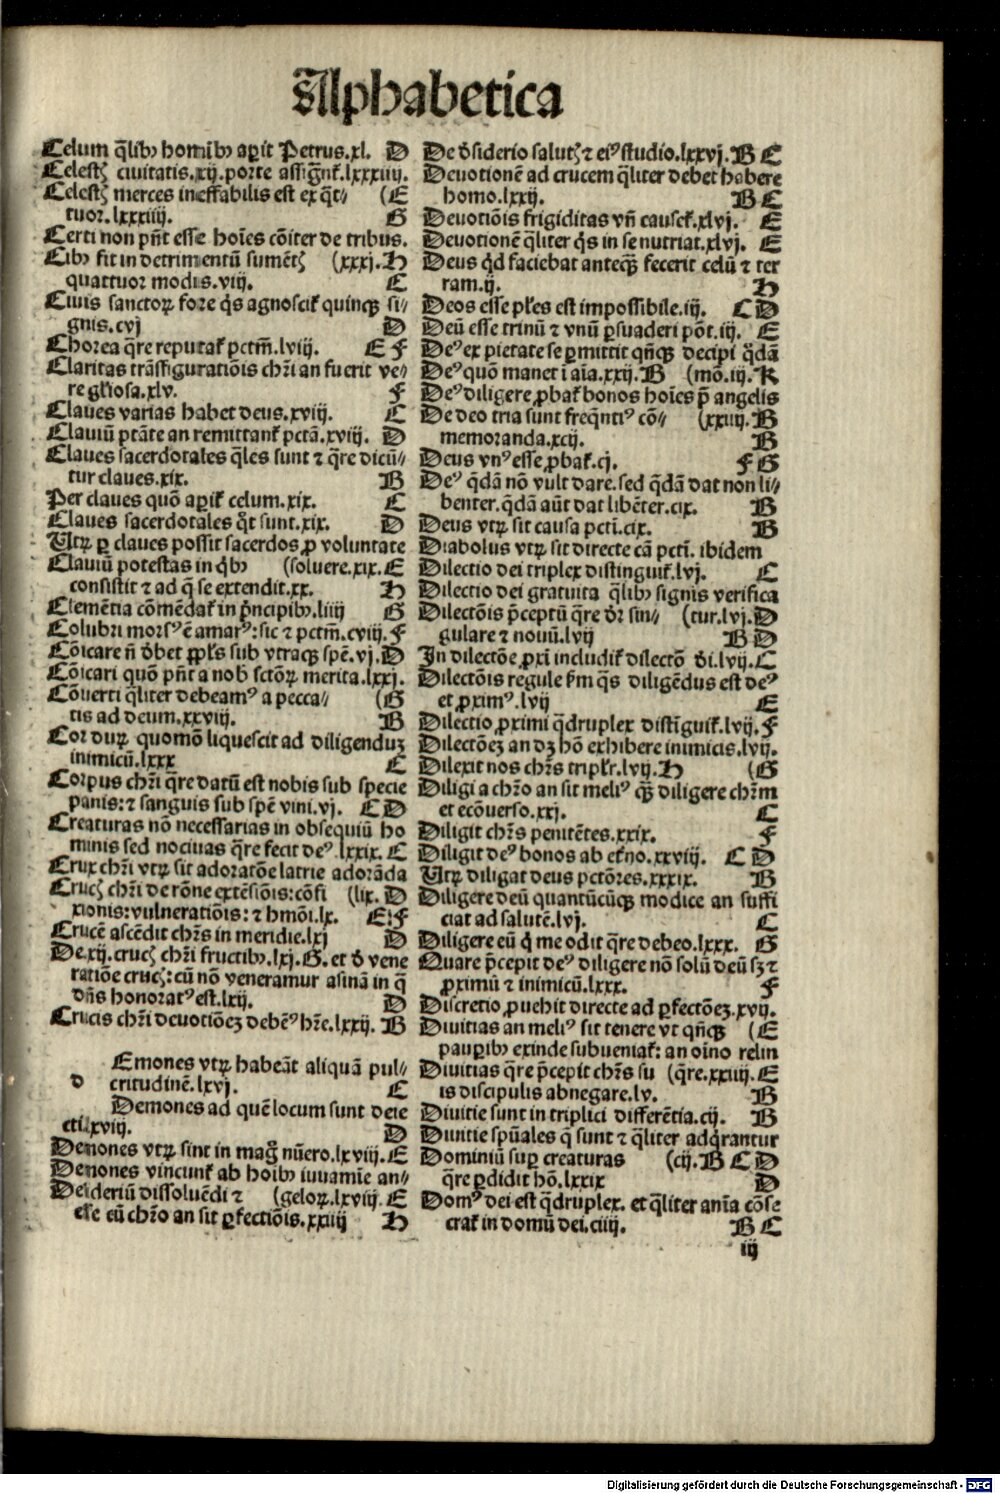 Alphabetica
Celum q̄libꝫ homībꝫ aꝑit Petrus.xl. D
Celestꝭ ciuitatis.xij.porte assig̃nt̃.lxxxiiij.
Celestꝭ merces ineffabilis est ex q̄t⸗ (E
tuor.lxxxiiij. G
Certi non pn̄t esse hoīes cōiter de tribus.
Cibꝫ fit in detrimentū sumētꝭ (xxxj.H
quattuor modis.viij. C
Ciuis sanctoꝝ fore q̇s agnoscit̃ quinqꝫ si⸗
gnis.cvj D
Chorea q̄re reputat̃ pctm̄.lviij. E F
Claritas trāsfiguratiōis chr̄i an fuerit ve⸗
re gl̄iosa.xlv. F
Claues varias habet deus.xviij. C
Clauiū ptāte an remittant̃ pctā.xviij. D
Claues sacerdotales q̄les sunt ⁊ q̄re dicū⸗
tur claues.xix. B
Per claues quō aꝑit̃ celum.xix. C
Claues sacerdotales q̇t sunt.xix. D
Vtꝝ ꝑ claues possit sacerdos ꝓ voluntate
Clauiū potestas in q̇bꝫ (soluere.xix.E
consistit ⁊ ad q̄ se extendit.xx. H
Clemētia cōmēdat̃ in p̄ncipibꝫ.liiij G
Colubri morsꝰ ē amarꝰ: sic ⁊ pctm̄.cviij.F
Cōicare n̄ dꝫbet ppl̄s sub vtraqꝫ spē.vj.D
Cōicari quō pn̄t a nob̄ sctōꝝ merita.lxxj.
Cōuerti q̄liter debeamꝰ a pecca⸗ (G
tis ad deum.xxviij. B
Cor duꝝ quomō liquescit ad diligenduꝫ
inimicū.lxxx C
Corpus chr̄i q̄re datū est nobis sub specie
panis: ⁊ sanguis sub spē vini.vj. C D
Creaturas nō necessarias in obsequiū ho
minis sed nociuas q̄re fecit deꝰ.lxxix. C
Crux chr̄i vtꝝ sit adoratōe latrie adorāda
Crucꝭ chr̄i de rōne extēsiōis: cōfi (lix. D
xionis: vulneratiōis: ⁊ hmōi.lx. E F
Crucē ascēdit chr̄s in meridie.lxj D
De.xij.crucꝭ chr̄i fructibꝫ.lxj.G. et d̄ vene
ratiōe crucꝭ: cū nō veneramur asinā in q̄
dn̄s honoratꝰ est.lxij. D
Crucis chr̄i deuotiōeꝫ debēꝰ hr̄e.lxxij. B
d
Emones vtꝝ habeāt aliquā pul⸗
critudinē.lxvj. C
Demones ad quē locum sunt deie
cti.xviij. D
Demones vtꝝ sint in mag̃ nūero.lxviij.E
Demones vincunt̃ ab hoībꝫ iuuamīe an⸗
Desideriū dissoluēdi ⁊ (geloꝝ.lxviij.E
esse cū chr̄o an sit ꝑfectiōis.xxiiij H
De dꝫsiderio salutꝭ ⁊ eiꝰ studio.lxxvj.B C
Deuotionē ad crucem q̄liter debet habere
homo.lxxij. B C
Deuotiōis frigiditas vn̄ causet̃.xlvj. E
Deuotionē q̄liter q̇s in se nutriat.xlvj. E
Deus q̇d faciebat anteqꝫ̄ fecerit celū ⁊ ter
ram.ij. H
Deos esse pl̄es est impossibile.iij. C D
Deū esse trinū ⁊ vnū ꝑsuaderi pōt.iij. E
Deꝰ ex pietate se ꝑmittit qn̄qꝫ decipi q̇dā
Deꝰ quō manet ī aīa.xxij.B (mō.iij.K
Deꝰ diligere ꝓbat̃ bonos hoīes p̄ angelis
De deo tria sunt freq̄ntiꝰ cō⸗ (xxiij.B
memoranda.xcij. B
Deus vnꝰ esse ꝓbat̃.cj. F G
Deꝰ q̄dā nō vult dare.sed q̄dā dat non li⸗
benter.q̄dā aūt dat libēter.cix. B
Deus vtꝝ sit causa pcti.cix. B
Diabolus vtꝝ sit directe cā pcti. ibidem
Dilectio dei triplex distinguit̃.lvj. C
Dilectio dei gratuita q̄libꝫ signis verifica
Dilectōis p̄ceptū q̄re dr̄ sin⸗ (tur.lvj.D
gulare ⁊ nouū.lvij B D
In dilectōe ꝓxī includit̃ dilectō d̄i.lvij.C
Dilectōis regule ẜm q̇s diligēdus est deꝰ
et ꝓximꝰ.lvij E
Dilectio ꝓximi q̄druplex distīguit̃.lvij.F
Dilectōeꝫ an dꝫ hō exhibere inimicis.lvij.
Dilexit nos chr̄s tripl̄r.lvij.H (G
Diligi a chr̄o an sit meliꝰ qꝫ̄ diligere chr̄m
et ecōuerso.xxj. C
Diligit chr̄s penitētes.xxix. F
Diligit deꝰ bonos ab et̃no.xxviij. C D
Vtꝝ diligat deus pctōres.xxxix. B
Diligere deū quantūcūqꝫ modice an suffi
ciat ad salutē.lvj. C
Diligere eū q̇ me odit q̄re debeo.lxxx. G
Quare p̄cepit deꝰ diligere nō solū deū sꝫ ⁊
ꝓximū ⁊ inimicū.lxxx. F
Discretio ꝓuehit directe ad ꝑfectōeꝫ.xvij.
Diuitias an meliꝰ sit tenere vt qn̄qꝫ (E
pauꝑibꝫ exinde subueniat̃: an oīno relin
Diuitias q̄re p̄cepit chr̄s su (q̄re.xxiiij.E
is discipulis abnegare.lv. B
Diuitie sunt in triplici differētia.cij. B
Diuitie spūales q̄ sunt ⁊ q̄liter adq̇rantur
Dominiū suꝑ creaturas (cij.B C D
q̄re ꝑdidit hō.lxxix D
Domꝰ dei est q̄druplex. et q̄liter anīa cōse
crat̃ in domū dei.ciiij. B C
iij
Digitalisierung gefördert durch die Deutsche Forschungsgemeinschaft - DFG